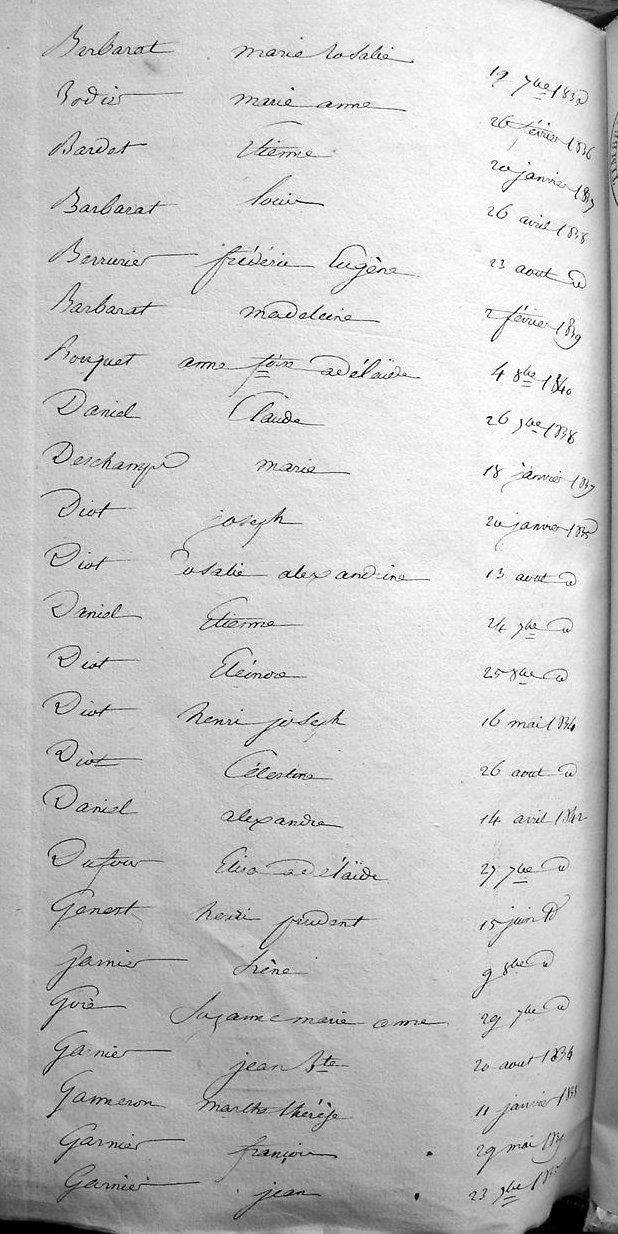 Barbarat marie rosalie 19 7bre 1832
Bodier marie anne 26 février 1836
Bardet Etienne 20 janvier 1837
Barbarat louis 26 avril 1838
Berrurier frédéric Eugène 23 aout d
Barbarat madeleine 2 février 1839
Bouquet anne foise adélaïde 4 8bre 1840
Daniel Claude 26 9bre 1838
Deschamps marie 18 janvier 1837
Diot joseph 20 janvier 1835
Diot rosalie alexandrine 13 avout d
Daniel Etienne 24 7bre d
Diot Eléonore 25 8bre d
Diot henri joseph 16 mai 1834
Diot Célestine 26 aout d
Daniel alexandre 14 avril 1842
Dufour Elisa adélaïde 27 7bre d
Genest henri prudent 15 juin d
garnier irène 9 8bre d
Gorè Suzanne marie anne 29 7bre d
Garnier jean Bte 20 aout 1834
Gameron marthe thérèse 11 janvier
Garnier françois 29 mai
Garnier jean 23 9bre